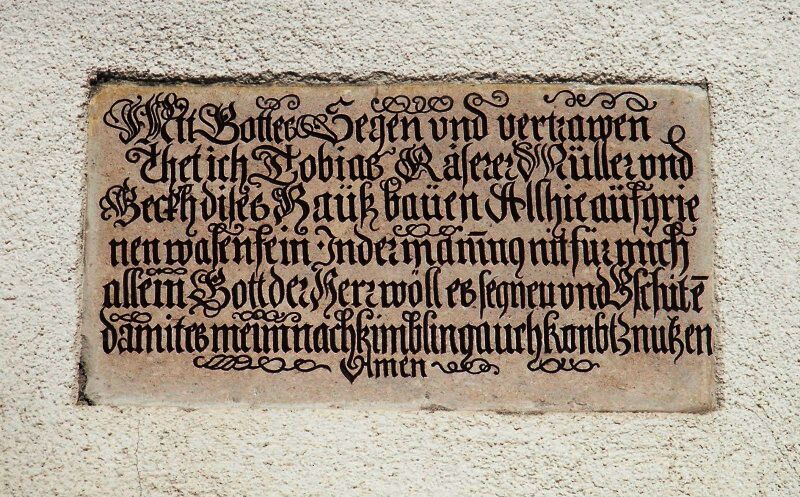 Mit Gottes Segen vnd vertrawen
Thet ich Tobias Käserer Müller vnd
Beckh dises Hauß bauen Alhie auf grie
nen wasen fein In der mainung nit für mich
allein Gott der Herr wöll es segnen vnd Bschitē
damit es meim nachkimbling auch kon btz nutzen
Amen